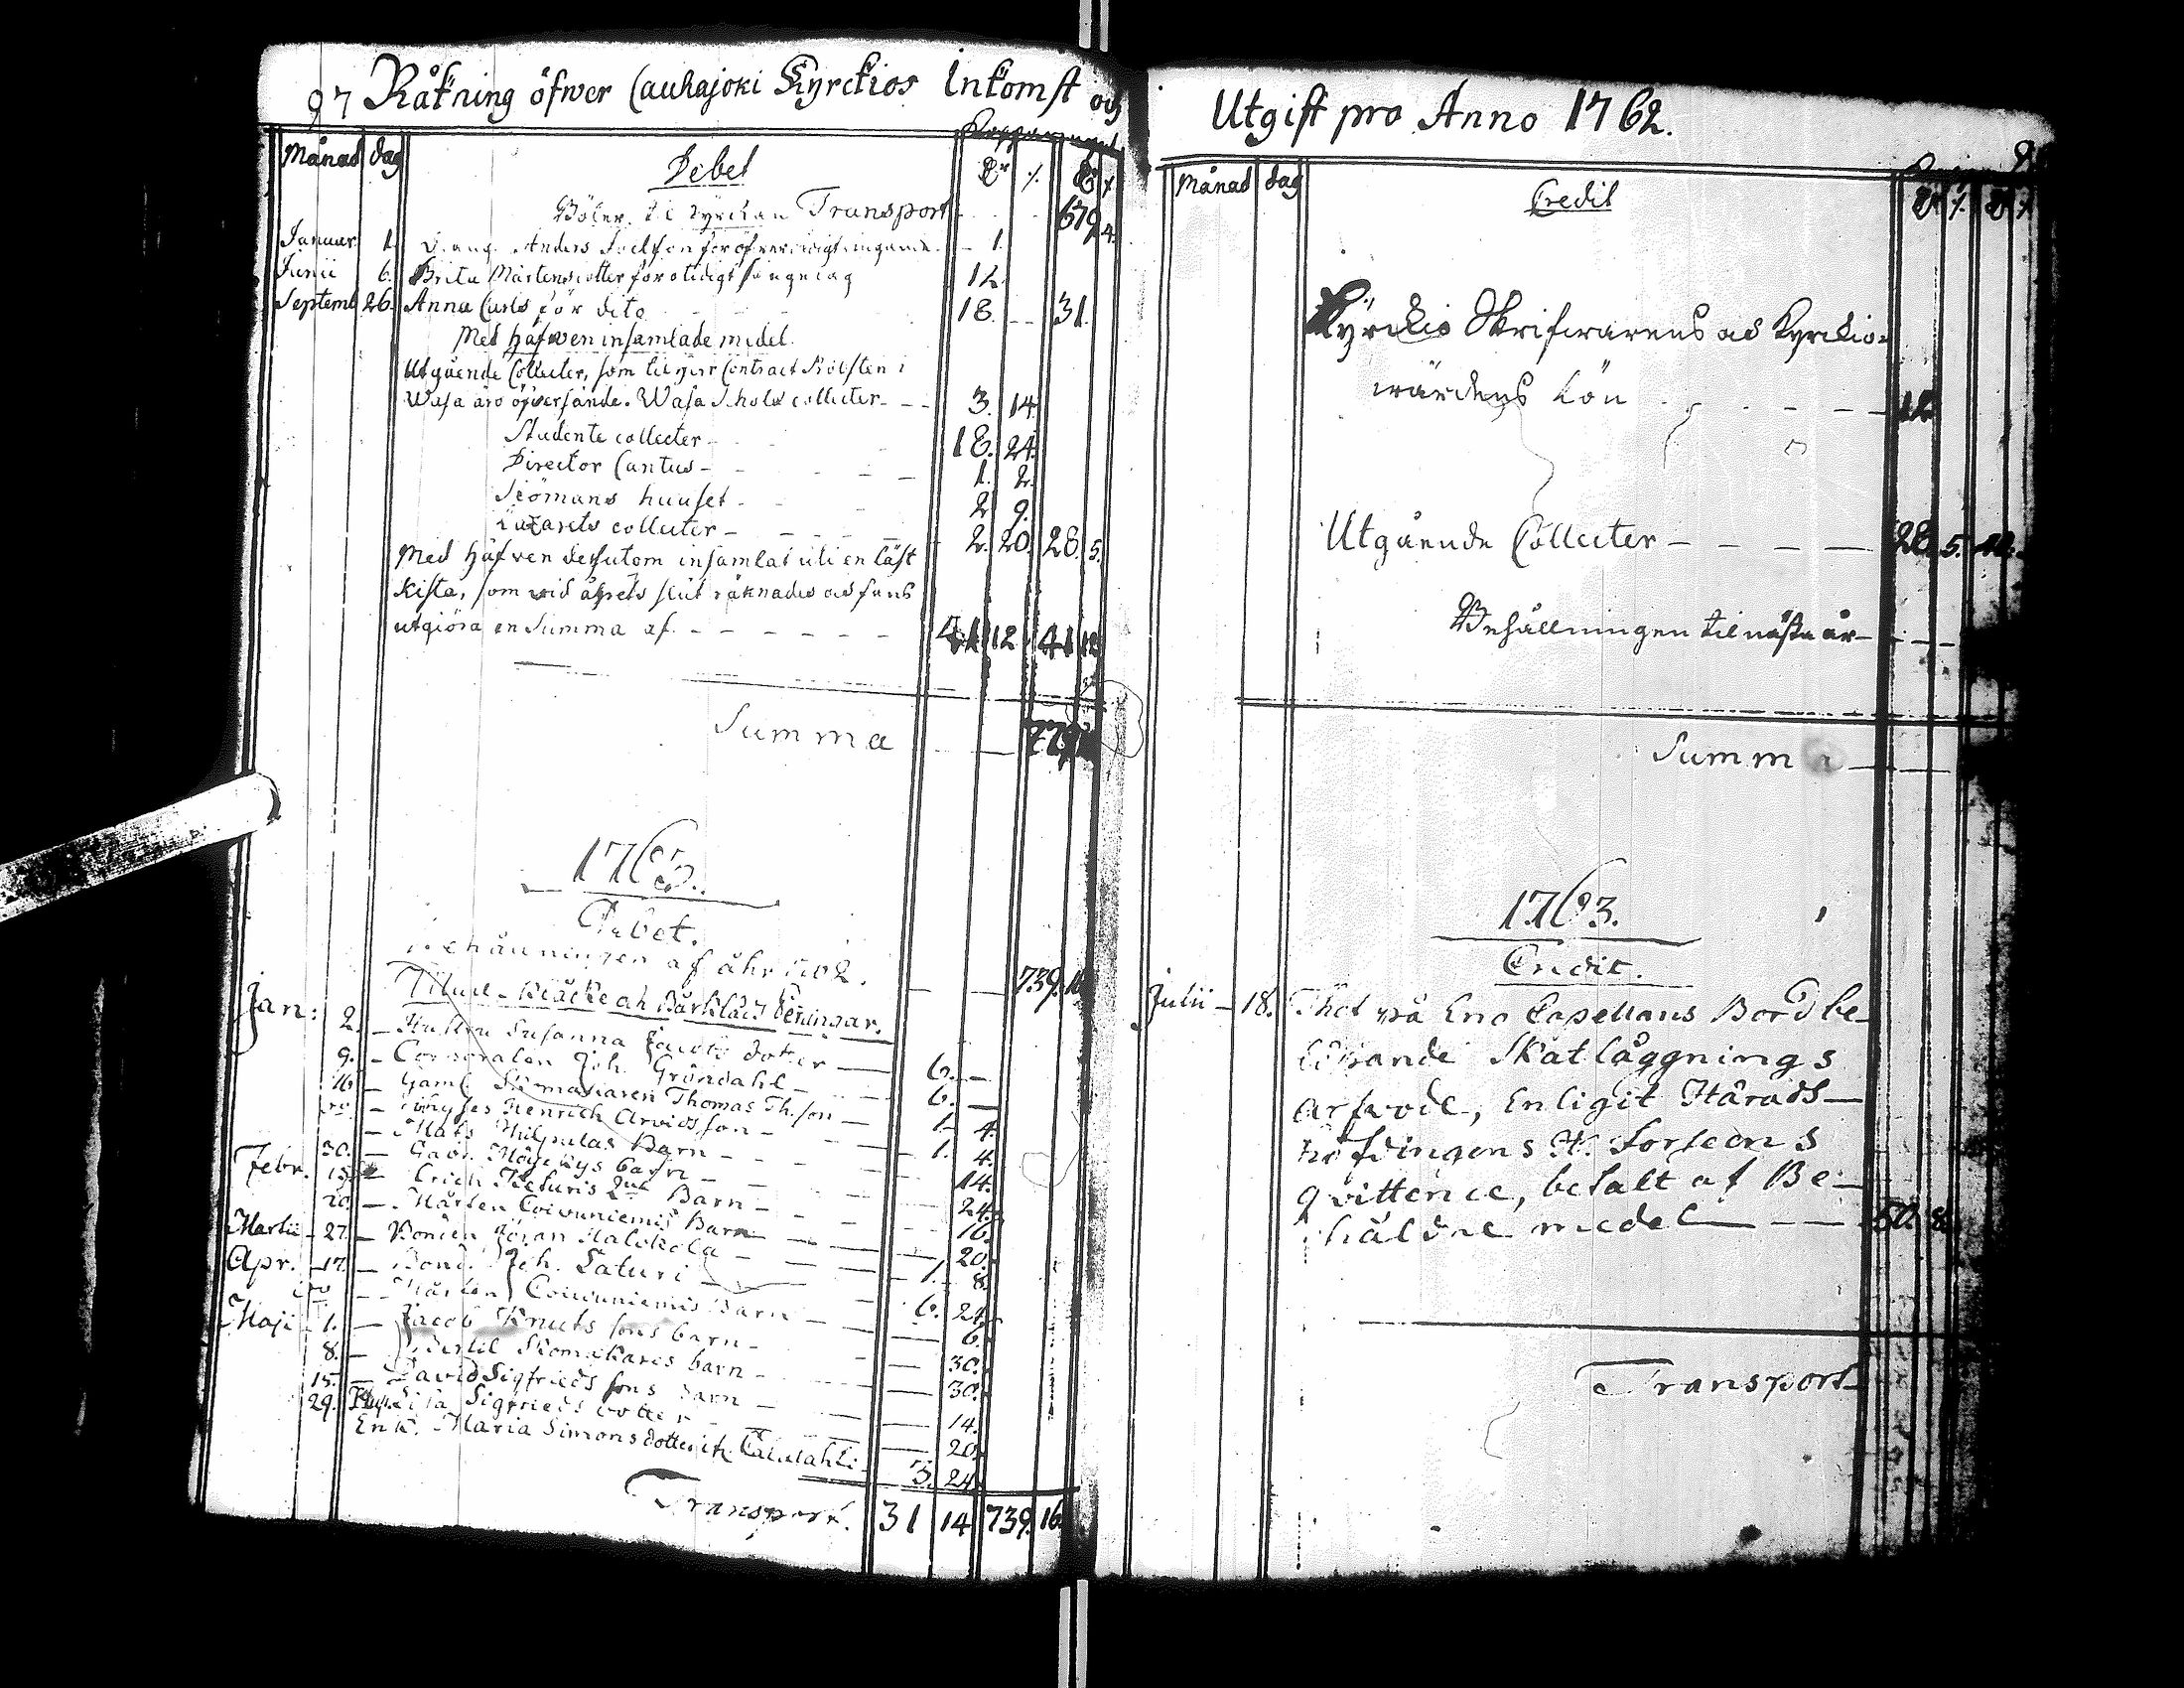 97 Räkning öfwer Cauhajoki Kyrckios Inkomst och
Månad dag Debet
Böter til Kyrckan Transport 679. 4.
Januar 1. Anders 1.
Junii 6. Brita Mårtensdotter för otidigt sängelag 12.
Septemb 26. Anna Carls för dito 18. 31.
Med håfwen insamlade medel.
Utgående Collecter, som til Contract
Wasa äro öfwersände. Wasa Schole collecter 3. 14.
Studente collecter 18. 24.
Director Cantus 1. 2.
Siömans huuset 2. 9.
Lazarets collecter 2. 20. 28. 5.
Med håfwen dessutom insamlat uti en låst
kista, som wid åhrets slut räknades och fans
utgiöra en Summa af 41 12 41 12
Summa 779
1763.
Debet.
Behållningen af åhr 1762. 739. 16
Jan: 2. Hustru Susanna Jacobs dotter 6.
9. Corporalen Joh. Gröndahl 6.
16. Gaml. Skomakaren Thomas Th.son 1. 4.
Henrich Arvidsson 1. 4.
Mats Barn 14.
30. Gabr. barn 24.
Febr. 13. Erich Keturis Barn 16.
20. Mårten Coivuniemis Barn 20.
Martii 27. Bonden Göran 1. 8.
Apr. 17. Bond. Joh. Laturi 6. 24.
Mårten Coivuniemis Barn 6.
Maji 1. Jacob Knuts sons barn 30.
8. Bertil Skomakares barn 30.
15. David Sigfrieds sons barn 14.
29. Sigfrieds dotter 20.
Enk. Maria Simonsdotter 3. 24.
Transport. 31 14 739. 16.
Utgift pro Anno 1762.
Månad dag Credit
Kyrckio Skrifwarens och Kyrckio-
wärdens Lön 12
Utgående Collecter 28. 5.
Behållningen til nästa år
Summa
1763.
Credit.
Julii 18. Thet på Capellans Bord be-
löpande Skatläggnings
arfvode, Enligit Härads-
höfdingens H. Forseens
qvittence, betalt af Be-
håldne medel 50. 8.
Transport